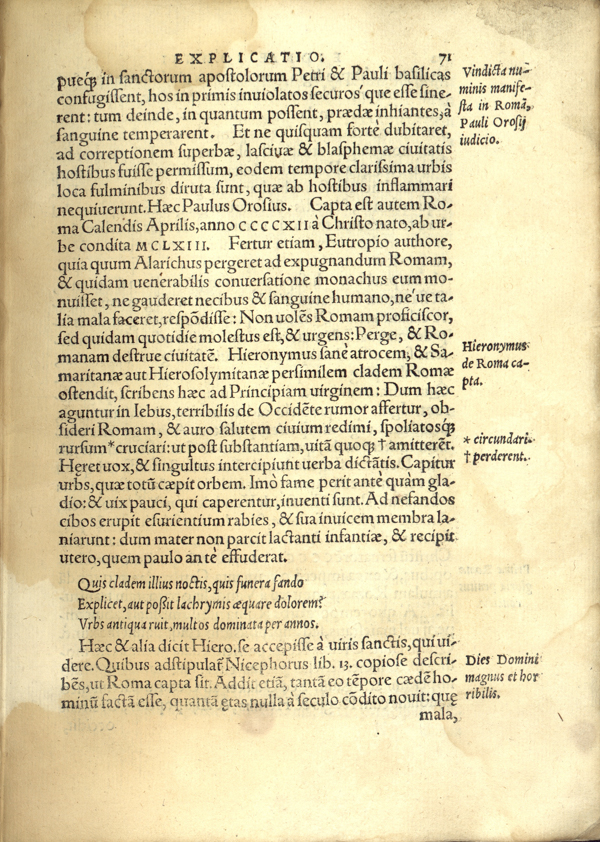 EXPLICATIO. 71
pueq́; in sanctorum apostolorum Petri & Pauli basilicas
confugissent, hos in primis inuiolatos securos'que esse sine-
rent: tum deinde, in quantum possent, prædæ inhiantes, à
sanguine temperarent. Et ne quisquam fortè dubitaret,
ad correptionem superbæ, lasciuæ & blasphemæ ciuitatis
hostibus fuisse permissum, eodem tempore clarissima urbis
loca fulminibus diruta sunt, quæ ab hostibus inflammari
nequiuerunt. Hæc Paulus Orosius. Capta est autem Ro-
ma Calendis Aprilis, anno CCCCXII à Christo nato, ab ur-
be condita MCLXIII. Fertur etiam, Eutropio authore,
quia quum Alarichus pergeret ad expugnandum Romam,
& quidam uenerabilis conuersatione monachus eum mo-
nuisset, ne gauderet necibus & sanguine humano, ne'ue ta-
lia mala faceret, respõdisse: Non uolẽs Romam proficiscor,
sed quidam quotidie molestus est, & urgens: Perge, & Ro-
manam destrue ciuitatẽ. Hieronymus sanè atrocem, & Sa-
maritanæ aut Hierosolymitanæ persimilem cladem Romæ
ostendit, scribens hæc ad Principiam uirginem: Dum hæc
aguntur in Iebus, terribilis de Occidẽte rumor affertur, ob-
sideri Romam, & auro salutem ciuium redimi, spoliatosq́;
rursum * cruciari: ut post substantiam, uitã quoq; † amitterẽt.
Hęret uox, & singultus intercipiunt uerba dictãtis. Capitur
urbs, quæ totũ cæpit orbem. Imò fame perit antè quàm gla-
dio: & uix pauci, qui caperentur, inuenti sunt. Ad nefandos
cibos erupit esurientium rabies, & sua inuicem membra la-
niarunt: dum mater non parcit lactanti infantiæ, & recipit
utero, quem paulo antè effuderat.
Quis cladem illius noctis, quis funera fando
Explicet, aut possit lachrymis æquare dolorem?
Vrbs antiqua ruit, multos dominata per annos.
Hæc & alia dicit Hiero. se accepisse à uiris sanctis, qui ui-
dere. Quibus adstipulat̃ Nicephorus lib. 13. copiose descri-
bẽs, ut Roma capta sit. Addit etiã, tantã eo tẽpore cædẽ ho-
minũ factã esse, quantã ętas nulla à seculo cõdito nouit: quę
mala,
Vindicta nu-
minis manife-
sta in Romã,
Pauli Orosij
iudicio.
Hieronymus
de Roma ca-
pta.
* circundari.
† perderent.
Dies Domini
magnus et hor
ribilis.